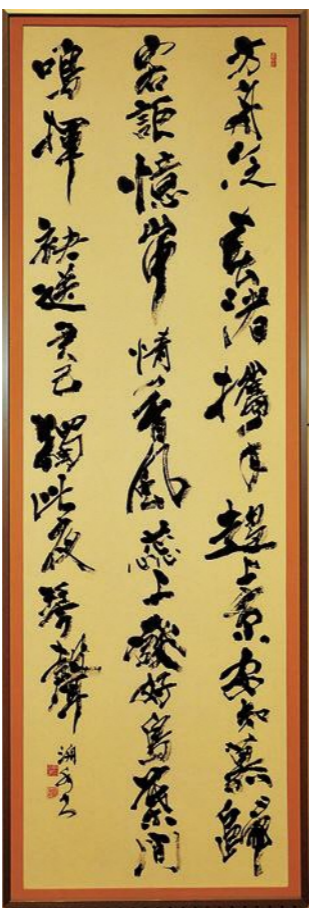 方舟泛春渚攜手趨上京安知慕歸
客詎憶山中情香風蕊上發好鳥葉間
鳴揮袂送君已獨此夜琴聲